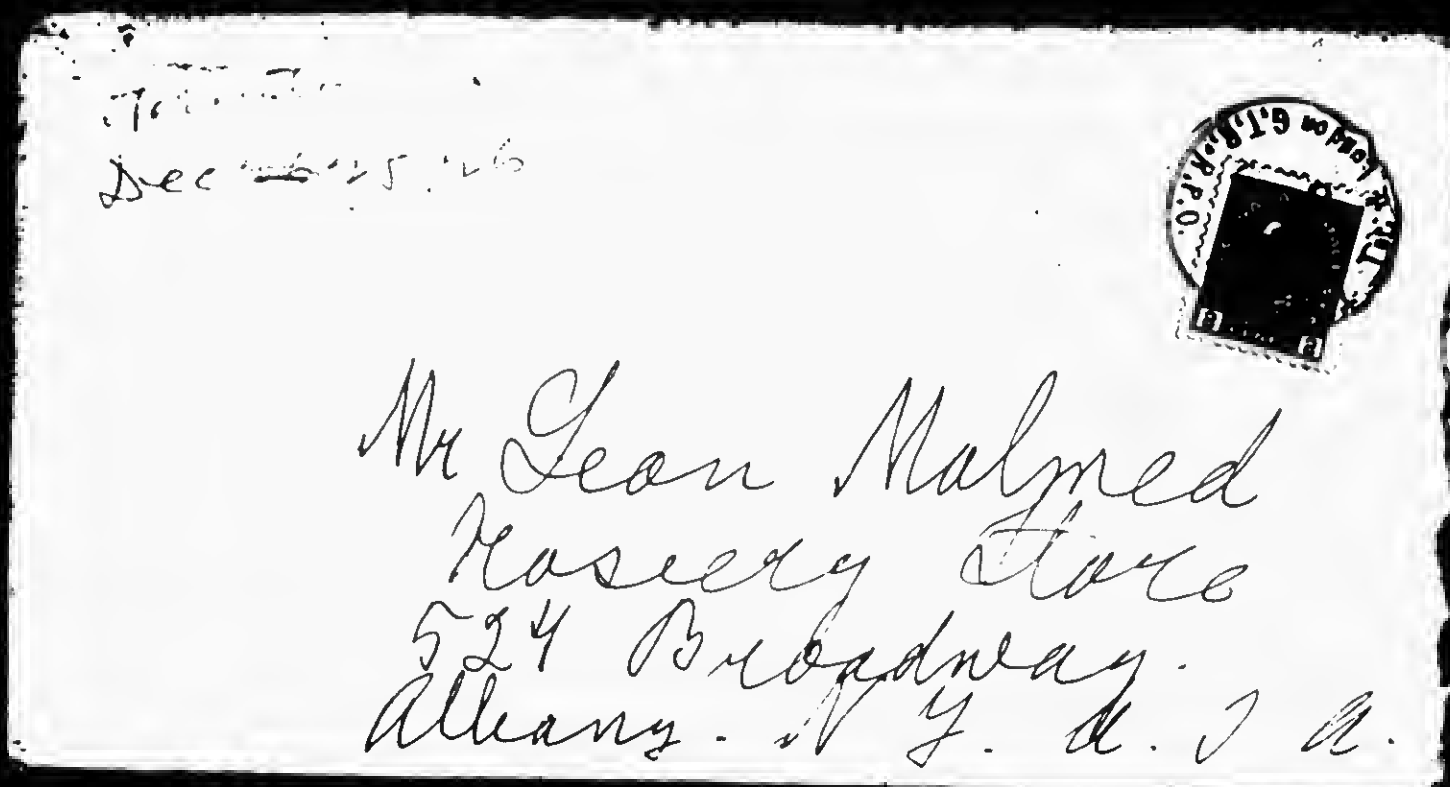 Toronto
Dec 25 '26
London G.T.R. R.P.O.
Mr Leon Malmed
Hosiery Store
524 Broadway.
Albany. N Y. U. S A.